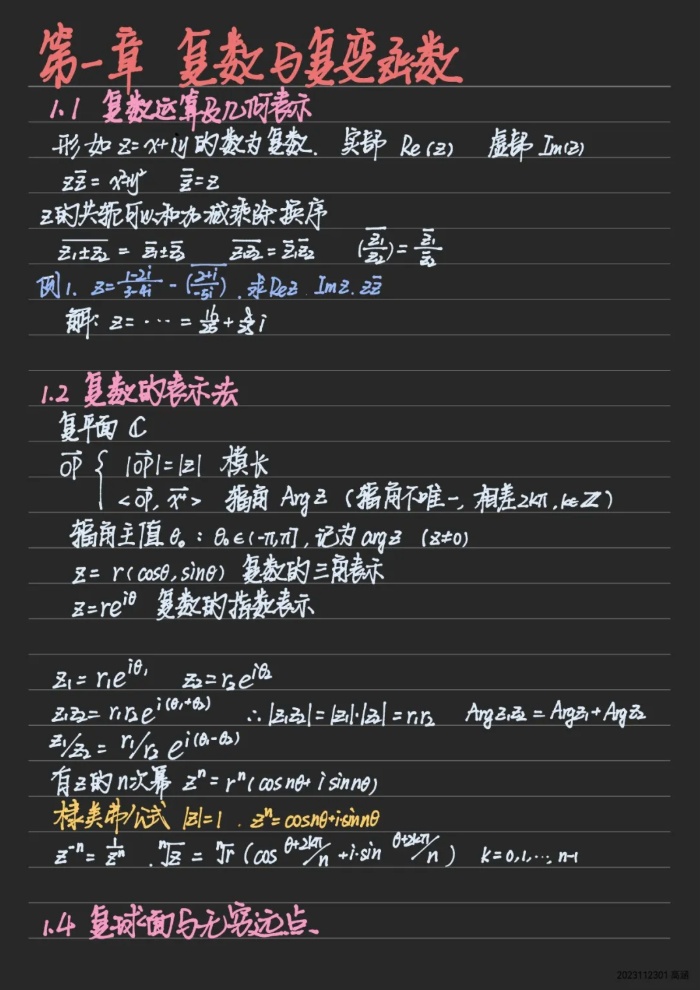 第一章 复数与复变函数
1.1 复数运算及几何表示
形如 z=x+iy 的数为复数. 实部 Re(z) 虚部 Im(z)
zz̅ = x²+y² z̿=z
z的共轭可以和加减乘除换序
\overline{z₁±z₂} = z̅₁±z̅₂ \overline{z₁z₂} = z̅₁z̅₂ \overline{(z₁/z₂)} = z̅₁/z̅₂
例1. z = (1-2i)/(3-4i) - \overline{((2+i)/(-5i))} . 求Rez Imz. zz̅
解: z = ··· =
1.2 复数的表示法
复平面 ℂ
OP⃗ { |OP⃗|=|z| 模长
<OP⃗, x⃗⁺> 辐角 Arg z (辐角不唯一, 相差2kπ, k∈ℤ)
辐角主值 θ₀ : θ₀∈(-π,π], 记为 arg z (z≠0)
z = r(cosθ, sinθ) 复数的三角表示
z=re^{iθ} 复数的指数表示
z₁ = r₁e^{iθ₁} z₂ = r₂e^{iθ₂}
z₁z₂ = r₁r₂e^{i(θ₁+θ₂)} ∴ |z₁z₂|=|z₁|·|z₂|=r₁r₂ Argz₁z₂ = Argz₁+Argz₂
z₁/z₂ = r₁/r₂ e^{i(θ₁-θ₂)}
有z的n次幂 zⁿ = rⁿ(cosnθ+isinnθ)
棣美弗公式 |z|=1 . zⁿ=cosnθ+isinnθ
z⁻ⁿ = 1/zⁿ . ⁿ√z = ⁿ√r (cos (θ+2kπ)/n + i·sin (θ+2kπ)/n) k=0,1,···, n-1
1.4 复球面与无穷远点.
2023112301